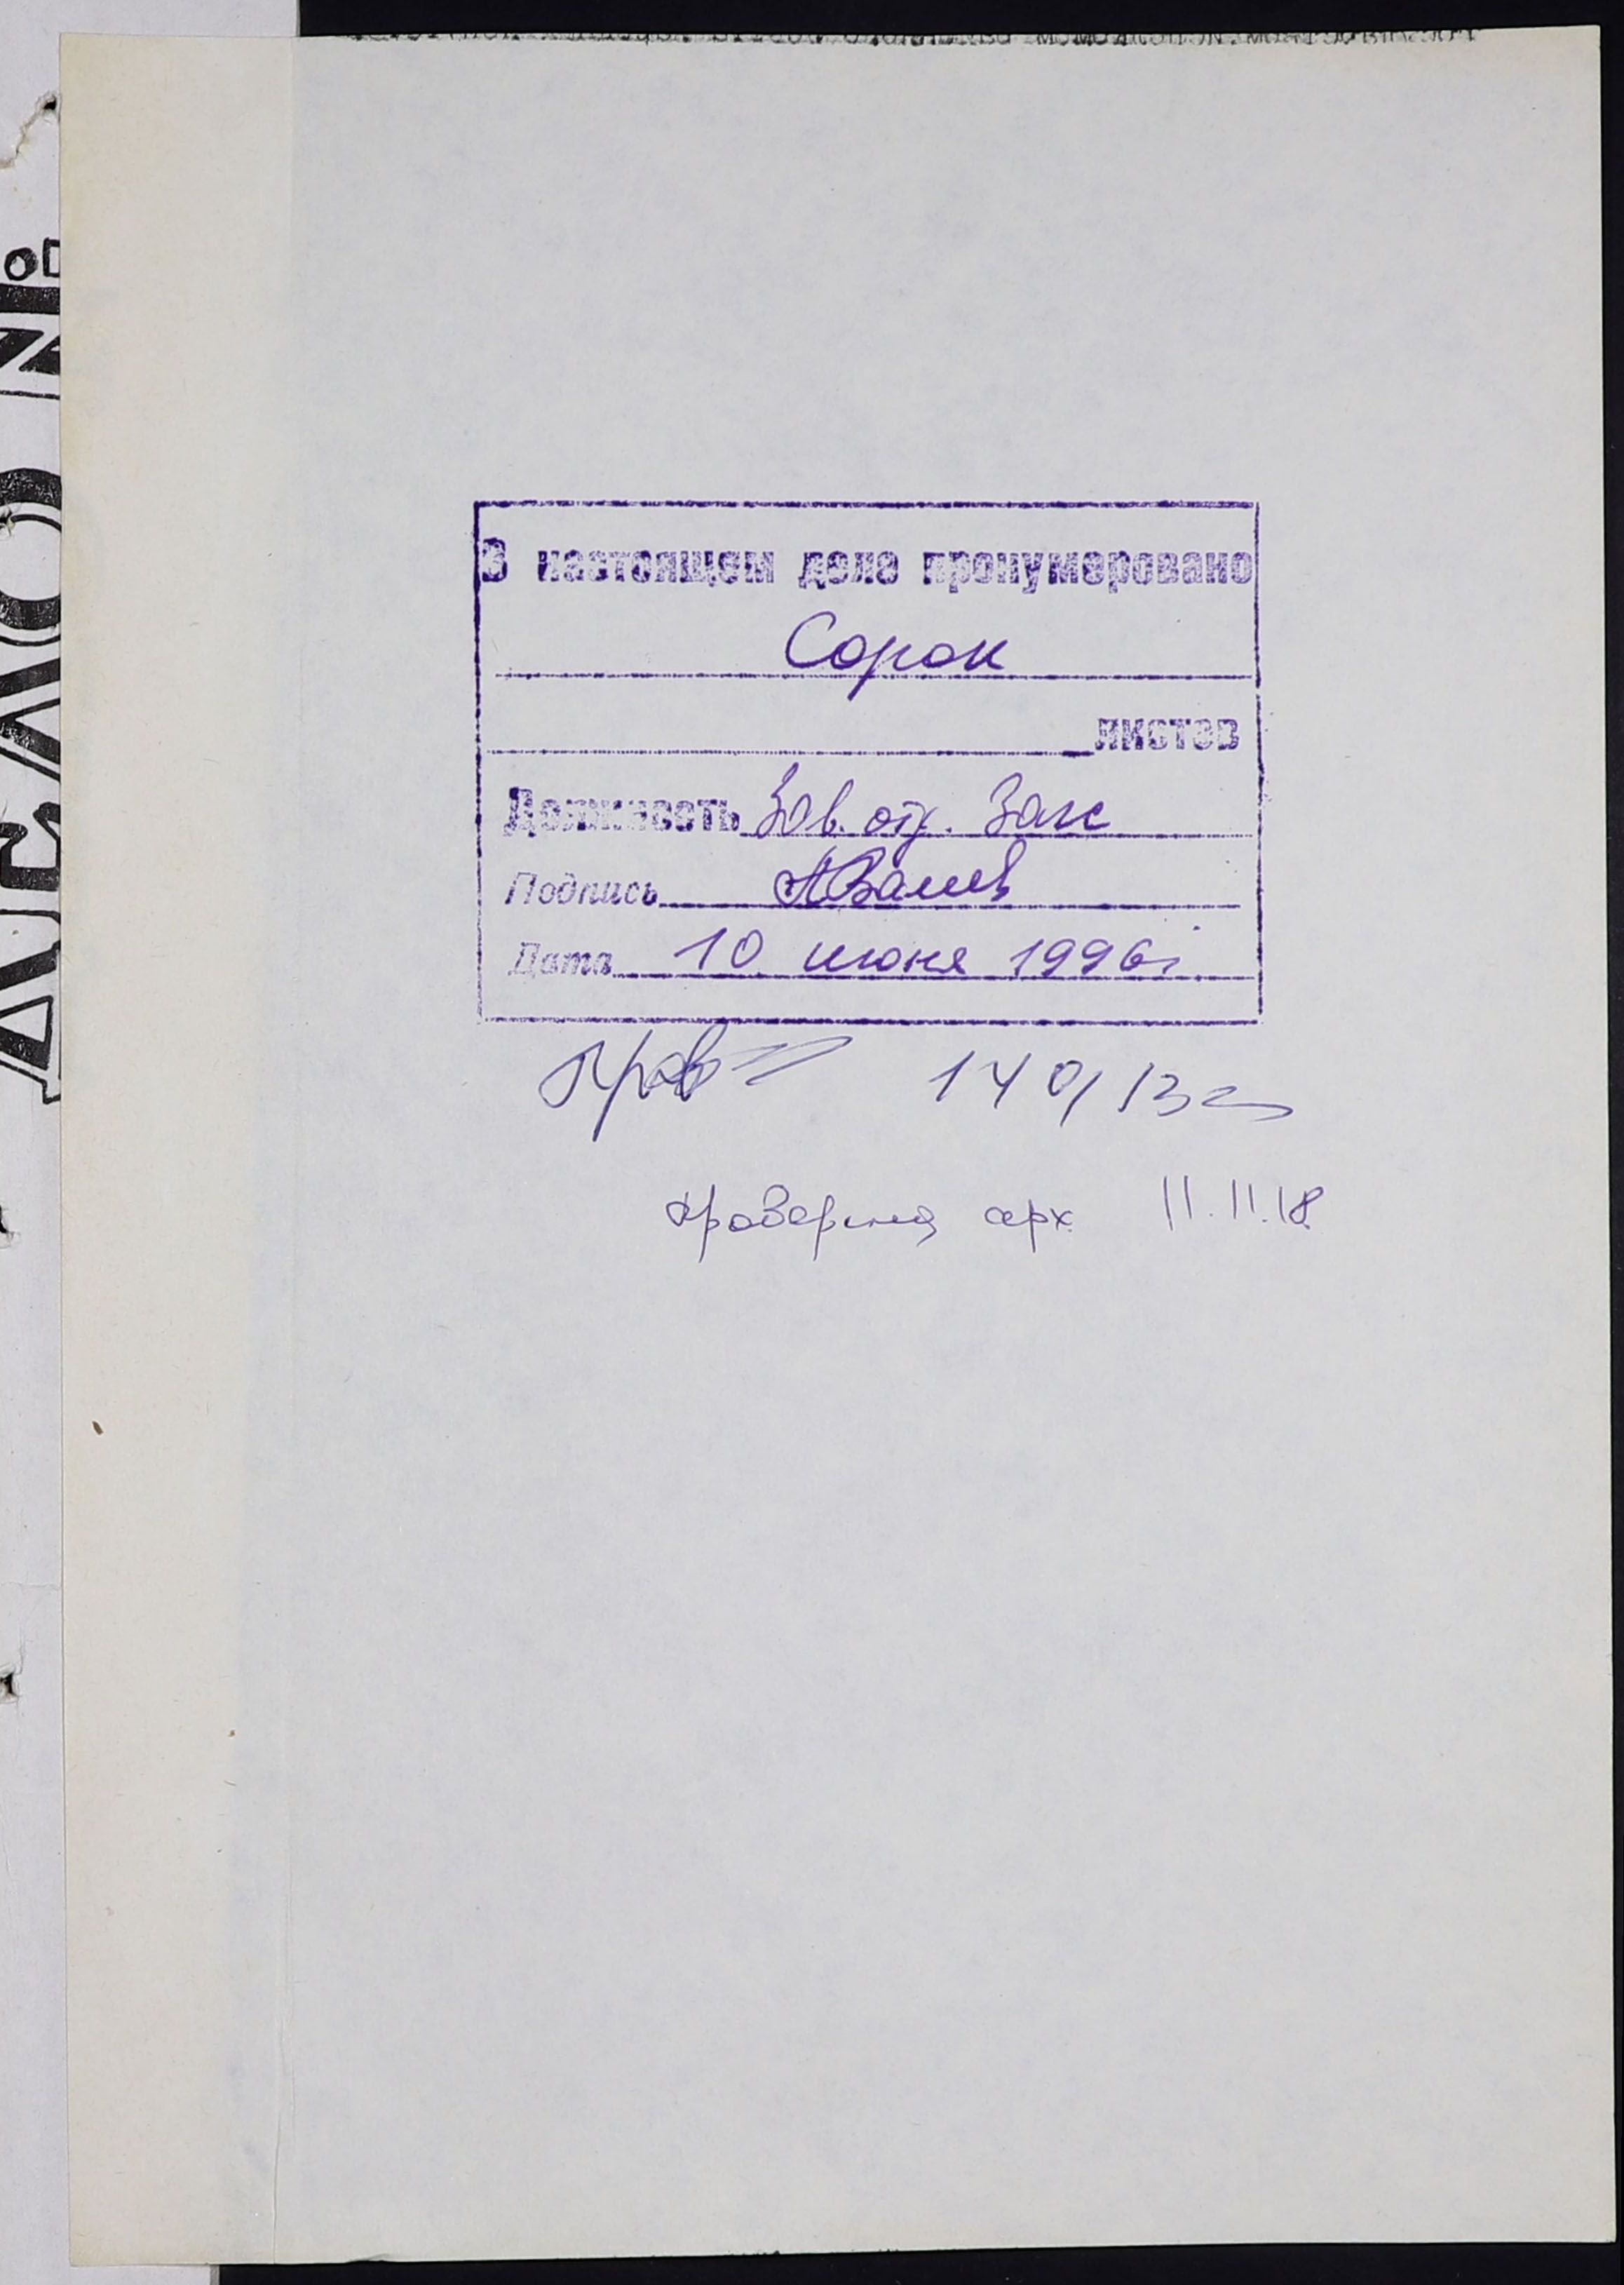 В настоящем деле пронумеровано
Сорок
листов
Должность Зав. отд. Загс
Подпись
Дата 10 июня 1996 г.
Пров
проверено арх 11.11.18
ДЕЛО №